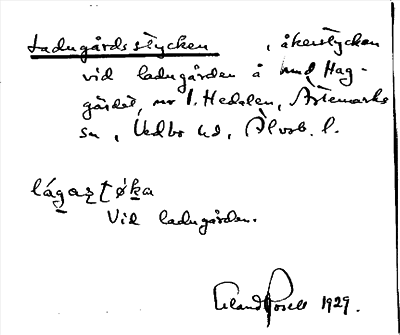 Ladugårdsstycken , åkerstycken
vid ladugården å und Hag-
gärdet, nr 1. Hedalen, Ärtemarks
sn, Vedbo hd, Älvsb. l.
lágaʐʈø̀ka
Vid ladugården.
Erland Rosell 1929.